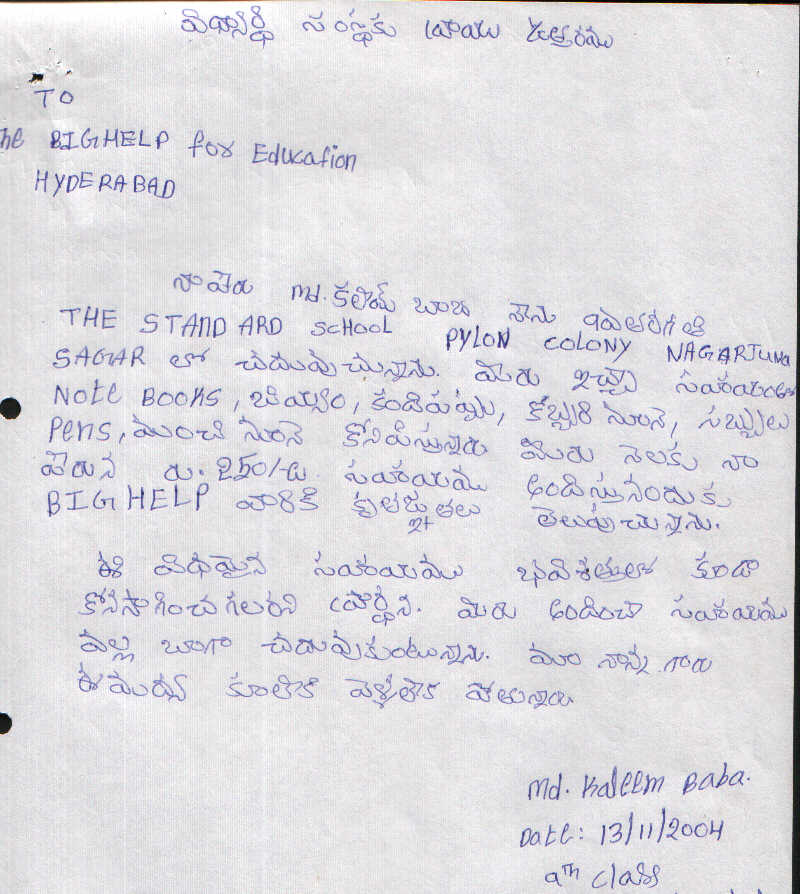 విద్యార్థి సంస్థకు వ్రాయు ఉత్తరము
TO
he BIGHELP for Education
HYDERABAD
నా పేరు Md. కలీమ్ బాబ నేను 9వ తరగతి
THE STANDARD SCHOOL PYLON COLONY NAGARJUNA
SAGAR లో చదువుచున్నాను. మీరు ఇచ్చే సహాయంతో
Note BOOKS, బియ్యం, కందిపప్పు, కొబ్బరి నూనె, సబ్బులు
Pens, మంచి నూనె కొనిపిస్తున్నారు మీరు నెలకు నా
పేరున రు. 250/-లు సహాయము అందిస్తునందుకు
BIGHELP వారికి కృతజ్ఞతలు తెలుపుచున్నాను.
ఈ విధమైన సహాయము భవిశతులో కూడా
కొనసాగించగలరని ప్రార్థన. మీరు అందించే సహాయము
వల్ల బాగా చదువుకుంటున్నాను. మా నాన్న గారు
ఈ మధ్య కూలికి వెళ్ళలేక పోతున్నారు
Md. Kaleem Baba.
Date: 13/11/2004
9th class